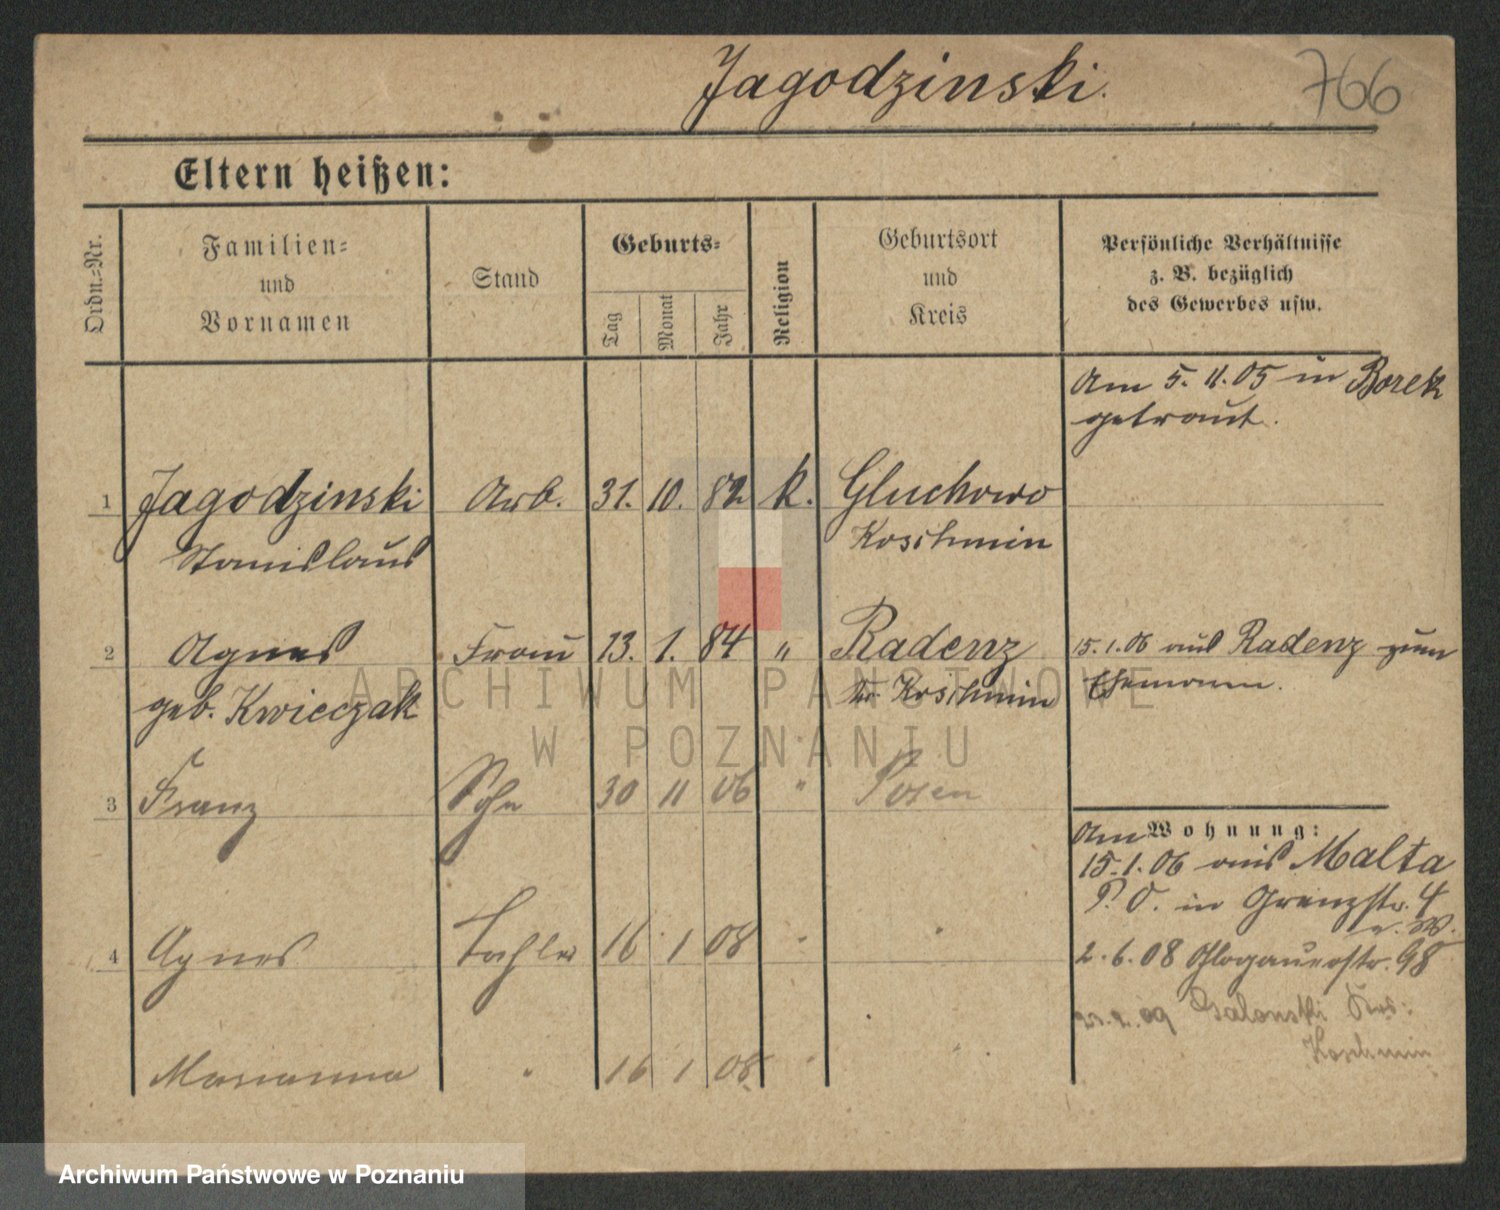 Jagodzinski.
766
Eltern heißen:
Ordn.-Nr.
Familien-
und
Vornamen
Stand
Geburts-
Tag
Monat
Jahr
Religion
Geburtsort
und
Kreis
Persönliche Verhältnisse
z. B. bezüglich
des Gewerbes usw.
Am 5. 11. 05 in Borek
getraut.
1 Jagodzinski Arb. 31. 10. 82 k. Gluchowo
Stanislaus Koschmin
2 Agnes Frau 13. 1. 84 " Radenz 15.1.06 aus Radenz zum
geb. Kwieczak Kr. Koschmin Ehemann.
3 Franz Sohn 30 11 06 " Posen
Wohnung:
Am
15.1.06 aus Malta
P. O. in Grenzstr. 4
4 Agnes Tochter 16 1 08 " "
2.6.08 Glogauerstr. 98
09 Kr:
Koschmin
Marianna " 16 1 08 " "
ARCHIWUM PAŃSTWOWE
W POZNANIU
Archiwum Państwowe w Poznaniu